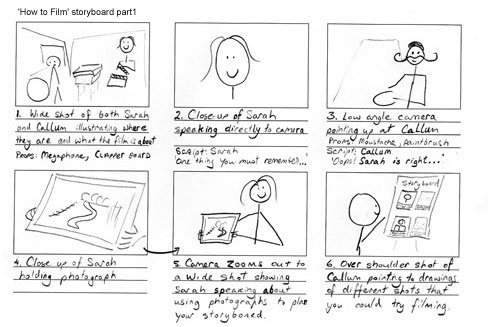 'How to Film' storyboard part1
1. Wide shot of both Sarah
and Callum illustrating where
they are and what the film is about
Props: Megaphone, CLAPPER BOARD
2. Close up of Sarah
speaking directly to camera
Script: Sarah
'One thing you must remember...'
3. Low angle camera
pointing up at Callum
Props: Moustache, Paintbrush
Script: Callum
'Oops! Sarah is right...'
4. Close up of Sarah
holding photograph
5 Camera zooms out to
a wide shot showing
Sarah speaking about
using photographs to plan
your storybored.
Storyboard
6. Over shoulder shot of
Callum pointing to drawings
of different shots that
you could try filming.